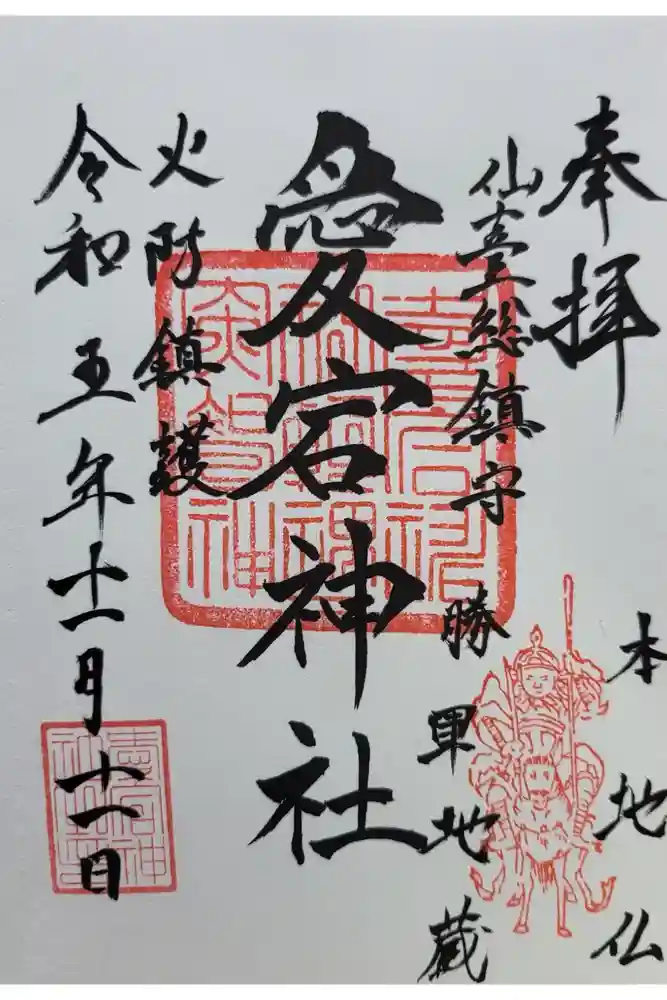 奉拝
仙臺総鎮守
本地仏
勝軍地蔵
愛宕神社
火防鎮護
令和五年十一月十一日